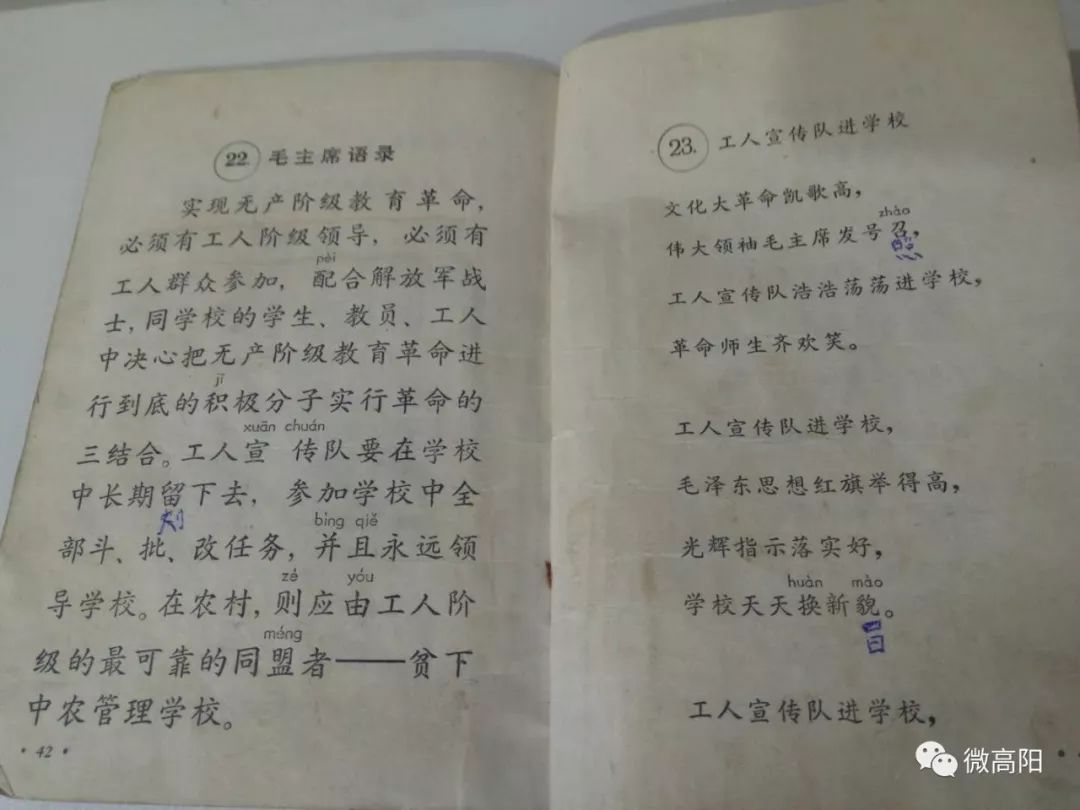 22. 毛主席语录
实现无产阶级教育革命，
必须有工人阶级领导，必须有
pèi
工人群众参加，配合解放军战
士，同学校的学生、教员、工人
中决心把无产阶级教育革命进
jī
行到底的积极分子实行革命的
xuān chuán
三结合。工人宣 传队要在学校
中长期留下去，参加学校中全
bìng qiě
部斗、批、改任务，并且永远领
zé yóu
导学校。在农村，则应由工人阶
méng
级的最可靠的同盟者——贫下
中农管理学校。
• 42 •
23. 工人宣传队进学校
文化大革命凯歌高，
zhào
伟大领袖毛主席发号召，
照
工人宣传队浩浩荡荡进学校，
革命师生齐欢笑。
工人宣传队进学校，
毛泽东思想红旗举得高，
光辉指示落实好，
huàn mào
学校天天换新貌。
工人宣传队进学校，
微高阳